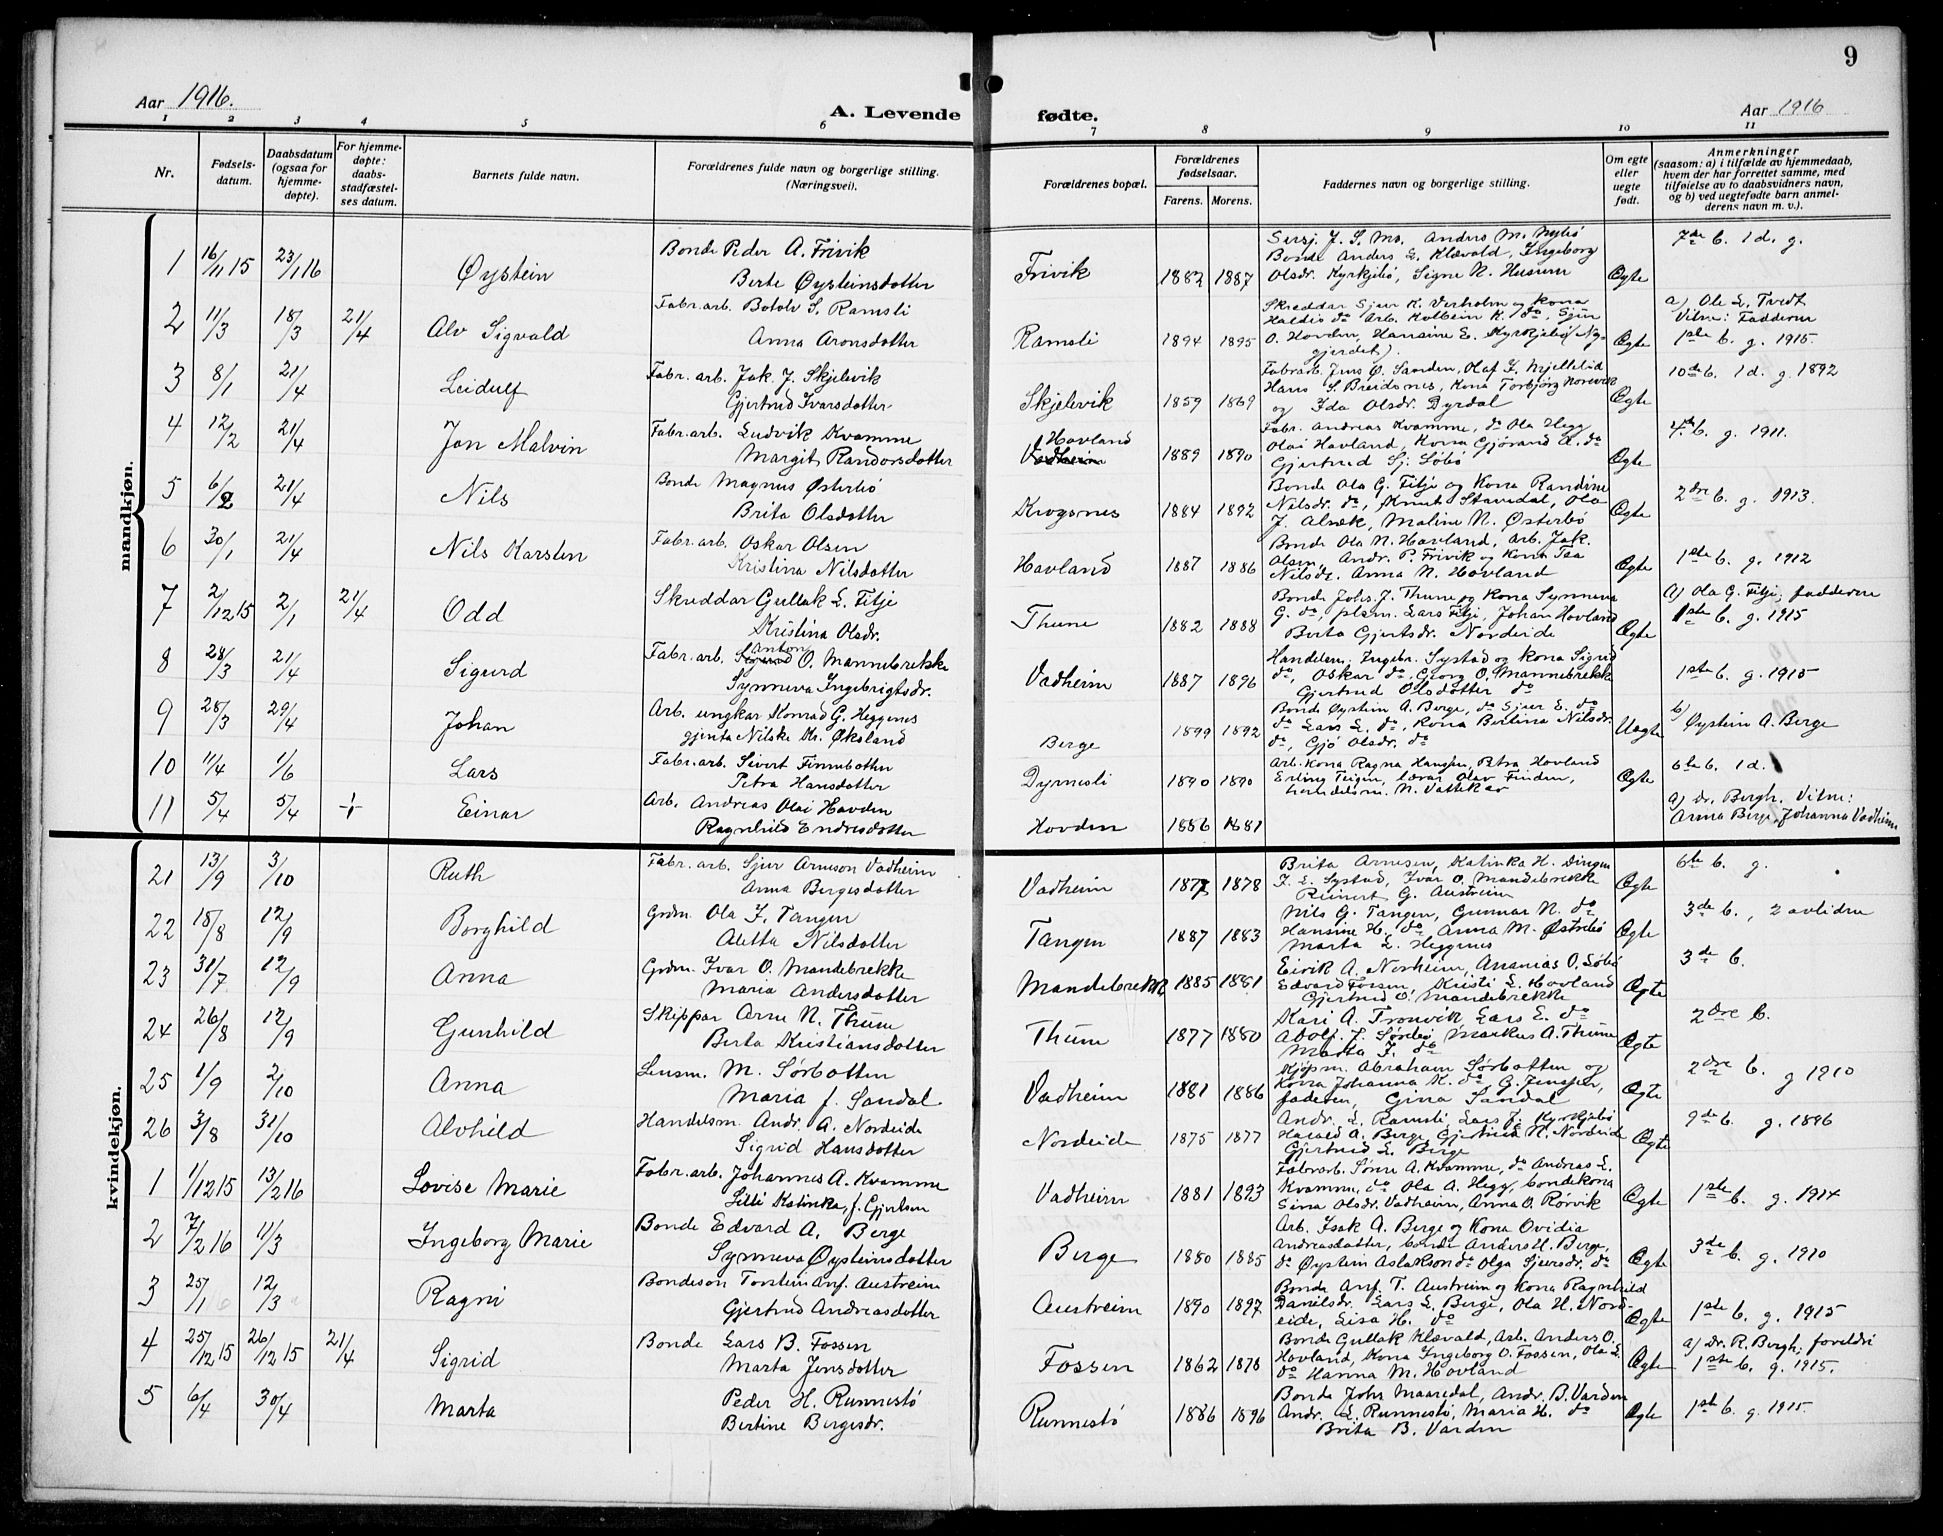 9
Aar 1916.
A. Levende fødte.
Aar 1916
1 2 3 4 5 6 7 8 9 10 11
Nr.
Fødsels-
datum.
Daabsdatum
(ogsaa for
hjemme-
døpte).
For hjemme-
døpte:
daabs-
stadfæstel-
ses datum.
Barnets fulde navn.
Forældrenes fulde navn og borgerlige stilling.
(Næringsvei).
Forældrenes bopæl.
Forældrenes
fødselsaar.
Farens. Morens.
Faddernes navn og borgerlige stilling.
Om egte
eller
uegte
født.
Anmerkninger
(saasom: a) i tilfælde av hjemmedaab,
hvem der har forrettet samme, med
tilføielse av to daabsvidners navn,
og b) ved uegtefødte barn anmel-
derens navn m. v.).
mandkjøn.
1 16/11 15 23/1 16 Øystein
Bonde Peder A. Frivik
Berte Øysteinsdotter
Frivik 1882 1887
Sersj. J. S. Mo. Anders M. Nybø
Bonde Anders L. Klævold, Ingeborg
Olsdr. Kyrkjebø, Signe N. Husum
Ægte
7de b. 1 d. g.
2 11/3 18/3 21/4 Alv Sigvald
Fabr. arb. Botolv S. Ramsli
Anna Aronsdotter
Ramsli 1894 1895
Skreddar Sjur K. Verholm og kona
Haldis do Arb. Kolbein K. do, Sjur
O. Hovden, Hansine E. Kyrkjebø (Ny-
gjerdet).
Ægte
a) Ole L. Tvedt
Vitne: Fadderne
1ste b. g. 1915.
3 8/1 21/4 Leidulf
Fabr. arb. Jak. J. Skjelevik
Gjertrud Ivarsdotter
Skjelevik 1859 1869
Fabrarb. Jens O. Sanden, Olaf I. Mjellelid
Hans S. Breidsnes, kona Torbjørg Norevik
og Ida Olsdr. Dyrdal
Ægte
10de b. 1 d. g. 1892
4 12/2 21/4 Jon Malvin
Fabr. arb. Ludvik Kvamme
Margit Randorsdotter
Hovland
Vadheim 1889 1890
Fabr. Andreas Kvamme, do Ola Hegg
Olai Hovland, kona Gjørand A. do
Gjertrud Sj. Løbø
Ægte
4de b. g. 1911.
5 6/2 21/4 Nils
Bonde Magnus Østerbø
Brita Oladotter
Krogsnes 1884 1892
Bonde Ola G. Fitje og kona Randine
Nilsdr. do, Knut Stavedal, Ola
J. Alsæk, Maline N. Østerbø
Ægte
2dre b. g. 1913.
6 30/1 21/4 Nils Karsten
Fabr. arb. Oskar Olsen
Kristina Nilsdotter
Hovland 1887 1886
Bonde Ola N. Hovland, Arb. Jak.
Olsen Andr. P. Frivik og kona Tea
Nilsdr. Anna N. Hovland
Ægte
1ste b. g. 1912
7 2/12 15 2/1 21/4 Odd
Skreddar Gullak L. Fitje
Kristina Olsdr.
Thune 1882 1888
Bonde Johs. J. Thune og kona Synneva
G. do, plsm. Lars Fitje, Johan Hovland
Berta Gjertsdr. Nordeide
Ægte
a) Ola G. Fitje, fadderne
1ste b. g. 1915
8 28/3 21/4 Sigurd
Fabr. arb. Sigurd Anton O. Mannebrekke
Synneva Ingebrigtsdr.
Vadheim 1887 1896
Handelsm. Ingebr. Systad og kona Sigrid
do, Oskar do, Georg O. Mannebrekk
Gjertrud Olsdotter do
1ste b. g. 1915
9 28/3 29/4 Johan
Arb. ungkar Konrad G. Heggenes
gjenta Nilske Kr. Øksland
Berge 1899 1892
Bonde Øystein A. Berge, do Sjur E. do
do Lars L. do, kona Bertina Nilsdr.
do, Gjø Olsdr. do
Uegte
b) Øystein A. Berge
10 11/4 1/6 Lars
Fabr. arb. Sivert Finnebotten
Petra Hansdotter
Dyrnesli 1890 1890
Arb. kona Ragna Hansen, Petra Hovland
Erling Teigen, lærar Olav Finden,
handelsm. N. Vattekar
Ægte
6te b. 1 d.
11 5/4 5/4 + Einar
Arb. Andreas Olai Hovden
Ragnhild Endresdotter
Hovden 1886 1881
a) Dr. Bergh. Vitne:
Anna Berge, Johanna Vadheim
kvindekjøn.
21 13/9 3/10 Ruth
Fabr. arb. Sjur Arneson Vadheim
Anna Bergesdotter
Vadheim 1877 1878
Brita Arnesen, Katinka H. Dingen
I. L. Systad, Ivar O. Mandebrekke
Reinert G. Austreim
Ægte
6te b. g.
22 15/8 12/9 Borghild
Grdm. Ola J. Tangen
Aletta Nilsdotter
Tangen 1887 1883
Nils G. Tangen, Gunnar N. do
Hansine H. do Anna M. Østrebø
Marta L. Heggenes
Ægte
3de b., 2 avlidne
23 31/7 12/9 Anna
Grdm. Ivar O. Mandebrekke
Maria Andersdotter
Mandebrekk 1885 1881
Eirik A. Norheim, Ananias O. Løbø
Edvard Fossen, Kristi L. Hovland
Gjertrud O. Mandebrekke
Ægte
3de b.
24 26/8 12/9 Gunhild
Skippar Arne N. Thune
Berta Kristiansdotter
Thune 1877 1880
Kari A. Tronvik Lars E. do
Adolf. J. Sørebø Markus A. Thune
Marta J. do
Ægte
2dre b.
25 1/9 2/10 Anna
Lensm. M. Sørbotten
Maria f. Sandal
Vadheim 1881 1886
Kjøpm. Abraham Sørbotten og
kona Johanna K. do G. Jensen,
faderen, Gina Sandal
Ægte
2dre b. g 1910
26 3/8 31/10 Alvhild
Handelsm. Andr. A. Nordeide
Sigrid Hansdotter
Nordeide 1875 1877
Andr. L. Ramsli, Lars J. Kyrkjebø
Harald A. Berge, Gjertrud N. Nordeide
Gjertrud L. Berge
Ægte
9de b. g 1896
1 1/12 15 13/2 16 Lovise Marie
Fabr. arb. Johannes A. Kvamme
Lilli Katinka, f. Gjertsen
Vadheim 1881 1893
Fabrarb. Sønne A. Kvamme, do Andreas L.
Kvamme, do Ola A. Hegg, bondekona
Sina Olsdr. Vadheim, Anna O. Rørvik
Ægte
1ste b. g. 1914
2 7/2 16 11/3 Ingeborg Marie
Bonde Edvard A. Berge
Synneva Øysteinsdotter
Berge 1880 1885
Arb. Isak A. Berge og kona Ovidia
Andreasdotter, bonde Anders H. Berge,
do Øystein Aslakson do Olga Sjursdr. do
Ægte
3de b. g. 1910
3 25/1 12/3 Ragni
Bondeson Torstein Anf. Austreim
Gjertrud Andreasdotter
Austreim 1890 1897
Bonde Anf. T. Austreim og kona Ragnhild
Danilsdr. Lars L. Berge, Ola H. Nord-
eide, Lisa H. do
Ægte
1ste b. g. 1915
4 25/12 15 26/12 15 21/4 Sigrid
Bonde Lars B. Fossen
Marta Jensdotter
Fossen 1862 1878
Bonde Gullak Klævald, Arb. Anders O.
Hovland, kona Ingeborg O. Fossen, Ola L.
do Hanna M. Hovland
Ægte
a) Dr. R. Bergh, foreldri
1ste b. g. 1915.
5 6/4 30/4 Marta
Peder H. Runnestø
Bertine Bergesdr.
Runnestø 1886 1896
Bonde Johs Maaredal, Andr. B. Varden
Andr. L. Runnestø, Maria H. do
Brita B. Varden
Ægte
1ste b. g. 1915.